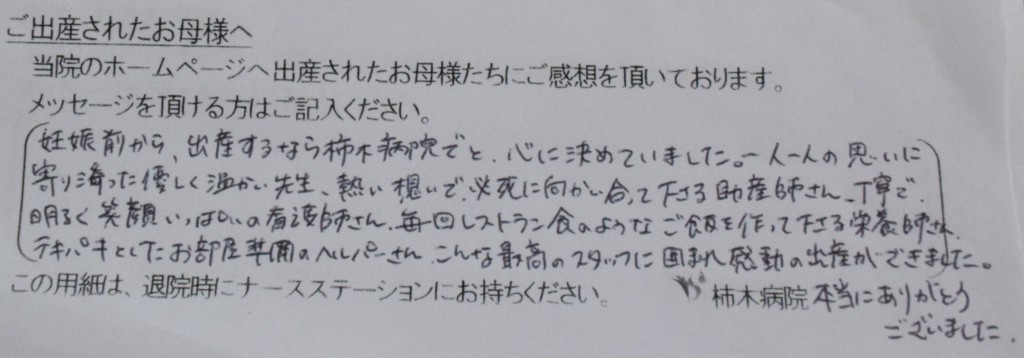 ご出産されたお母様へ
当院のホームページへ出産されたお母様たちにご感想を頂いております。
メッセージを頂ける方はご記入ください。
妊娠前から、出産するなら柿木病院でと、心に決めていました。一人一人の思いに
寄り添った優しく温かい先生、熱い想いで必死に向かい合って下さる助産師さん、丁寧で、
明るく笑顔いっぱいの看護師さん、毎回レストラン食のようなご飯を作って下さる栄養師さん、
テキパキとしたお部屋準備のヘルパーさん、こんな最高のスタッフに囲まれ感動の出産ができました。
この用紙は、退院時にナースステーションにお持ちください。
柿木病院 本当にありがとう
ございました.